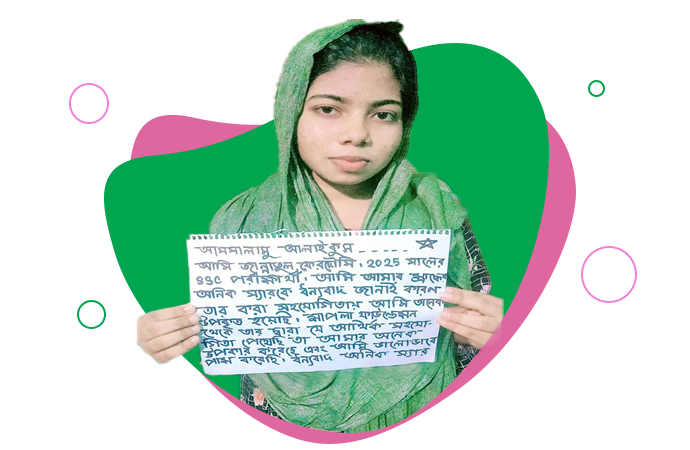 আসসালামু আলাইকুম -----
আমি জান্নাতুল ফেরদৌসি, 2025 সালের
SSC পরীক্ষার্থী, আমি আমার শ্রদ্ধেয়
অনিক স্যারকে ধন্যবাদ জানাই কারণ
তার করা সহযোগিতায় আমি অনেক
উপকৃত হয়েছি, শাপলা ফাউন্ডেশন
থেকে তার দ্বারা যে আর্থিক সহযো-
গিতা পেয়েছি তা আমার অনেক-
উপকার করেছে এবং আমি ভালোভাবে
পাস করেছি, ধন্যবাদ অনিক স্যার